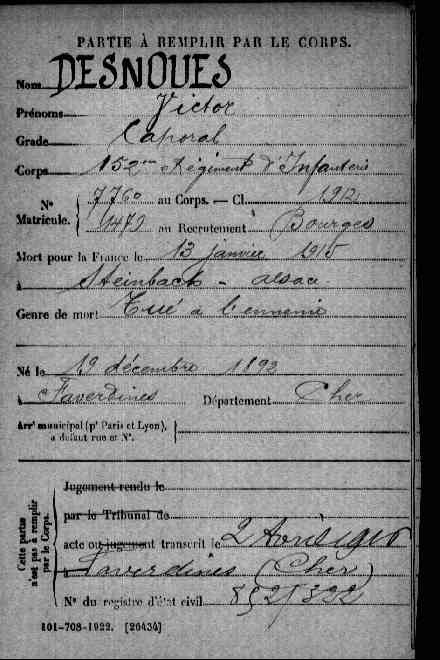 PARTIE À REMPLIR PAR LE CORPS.
Nom DESNOUES
Prénoms Victor
Grade Caporal
Corps 152me Régiment d'Infanterie
N° Matricule. { 7760 au Corps. — Cl. 1912
1479 au Recrutement à Bourges
Mort pour la France le 13 janvier 1915
à Steinbach - alsace.
Genre de mort Tué à l'ennemi
Né le 19 décembre 1892
à Faverdines Département Cher
Arrt municipal (pr Paris et Lyon), à défaut rue et N°.
Cette partie n'est pas à remplir par le Corps.
Jugement rendu le
par le Tribunal de
acte ou jugement transcrit le 2 Avril 1916
à Faverdines (Cher)
N° du registre d'état civil
101-708-1922. [26434]